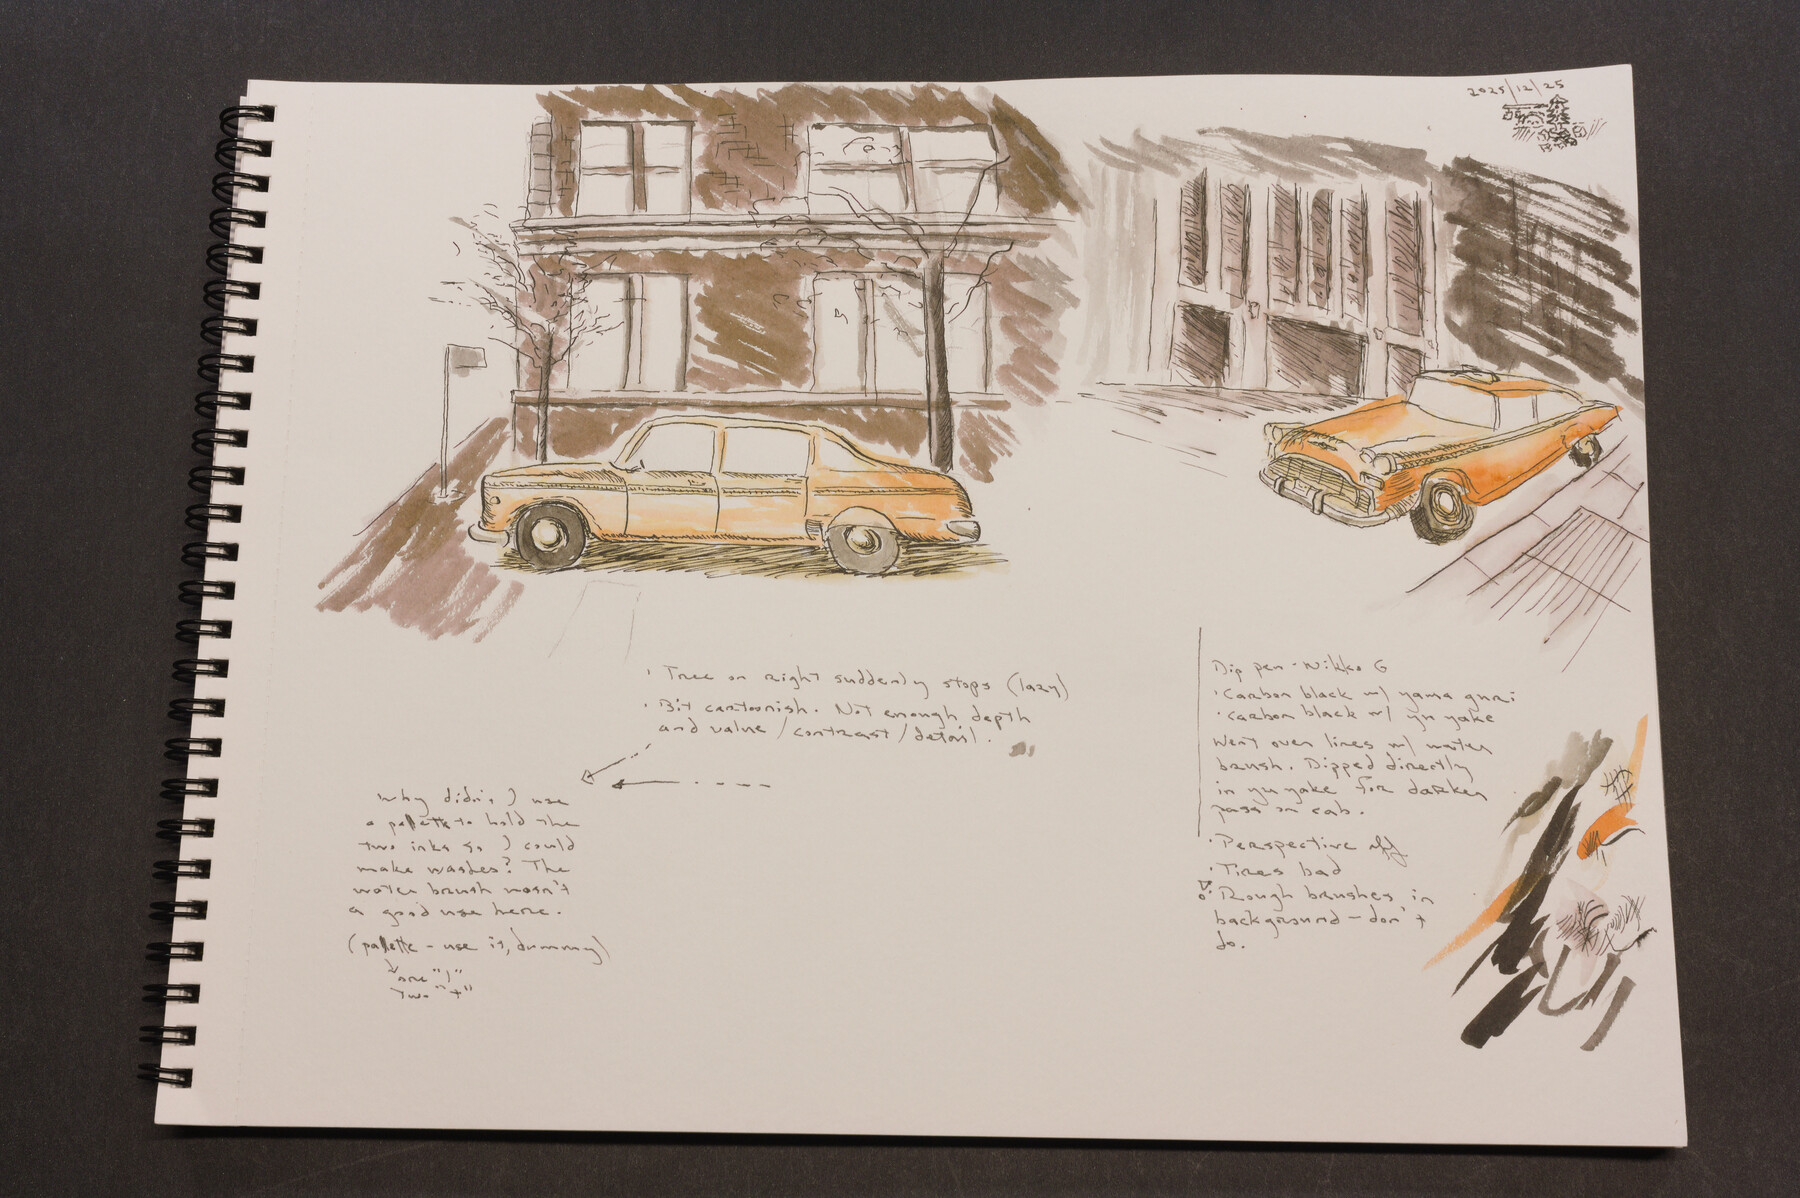 2025/12/25
· Tree on right suddenly stops (lazy)
· Bit cartoonish. Not enough depth
and value/contrast/detail.
Why didn't I use
a palette to hold the
two inks so I could
make washes? The
water brush wasn't
a good use here.
(palette - use it, dummy)
one "l"
two "t"
Dip pen - Nikko G
· Carbon black w/ yama guri
· Carbon black w/ yu yake
Went over lines w/ water
brush. Dipped directly
in yu yake for darker
pass on cab.
· Perspective off
· Tires bad
· Rough brushes in
background - don't
do.